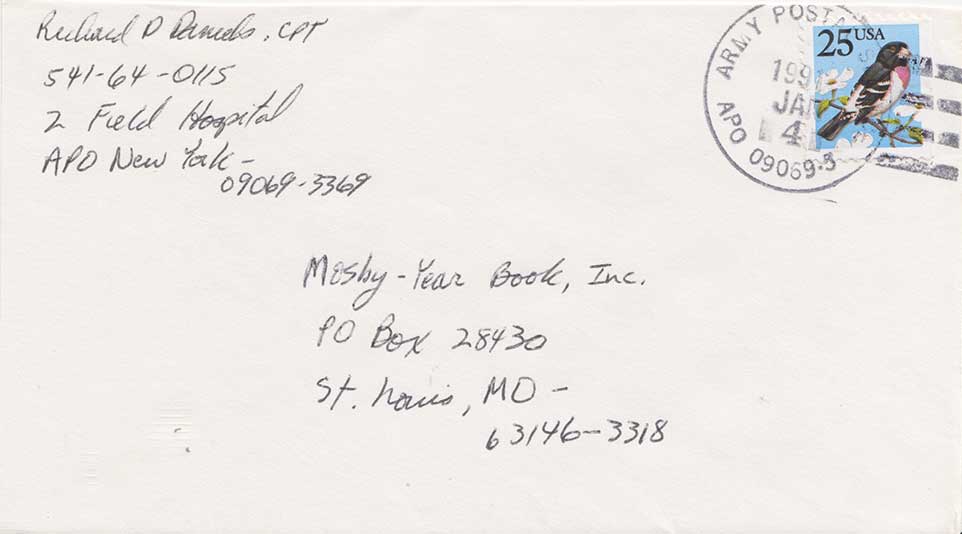 Richard D Daniels, CPT
541-64-0115
2 Field Hospital
APO New York -
09069-3369
ARMY POSTA
199
JA
4
APO 09069-3
25 USA
Mosby-Year Book, Inc.
PO Box 28430
St. Louis, MO -
63146-3318